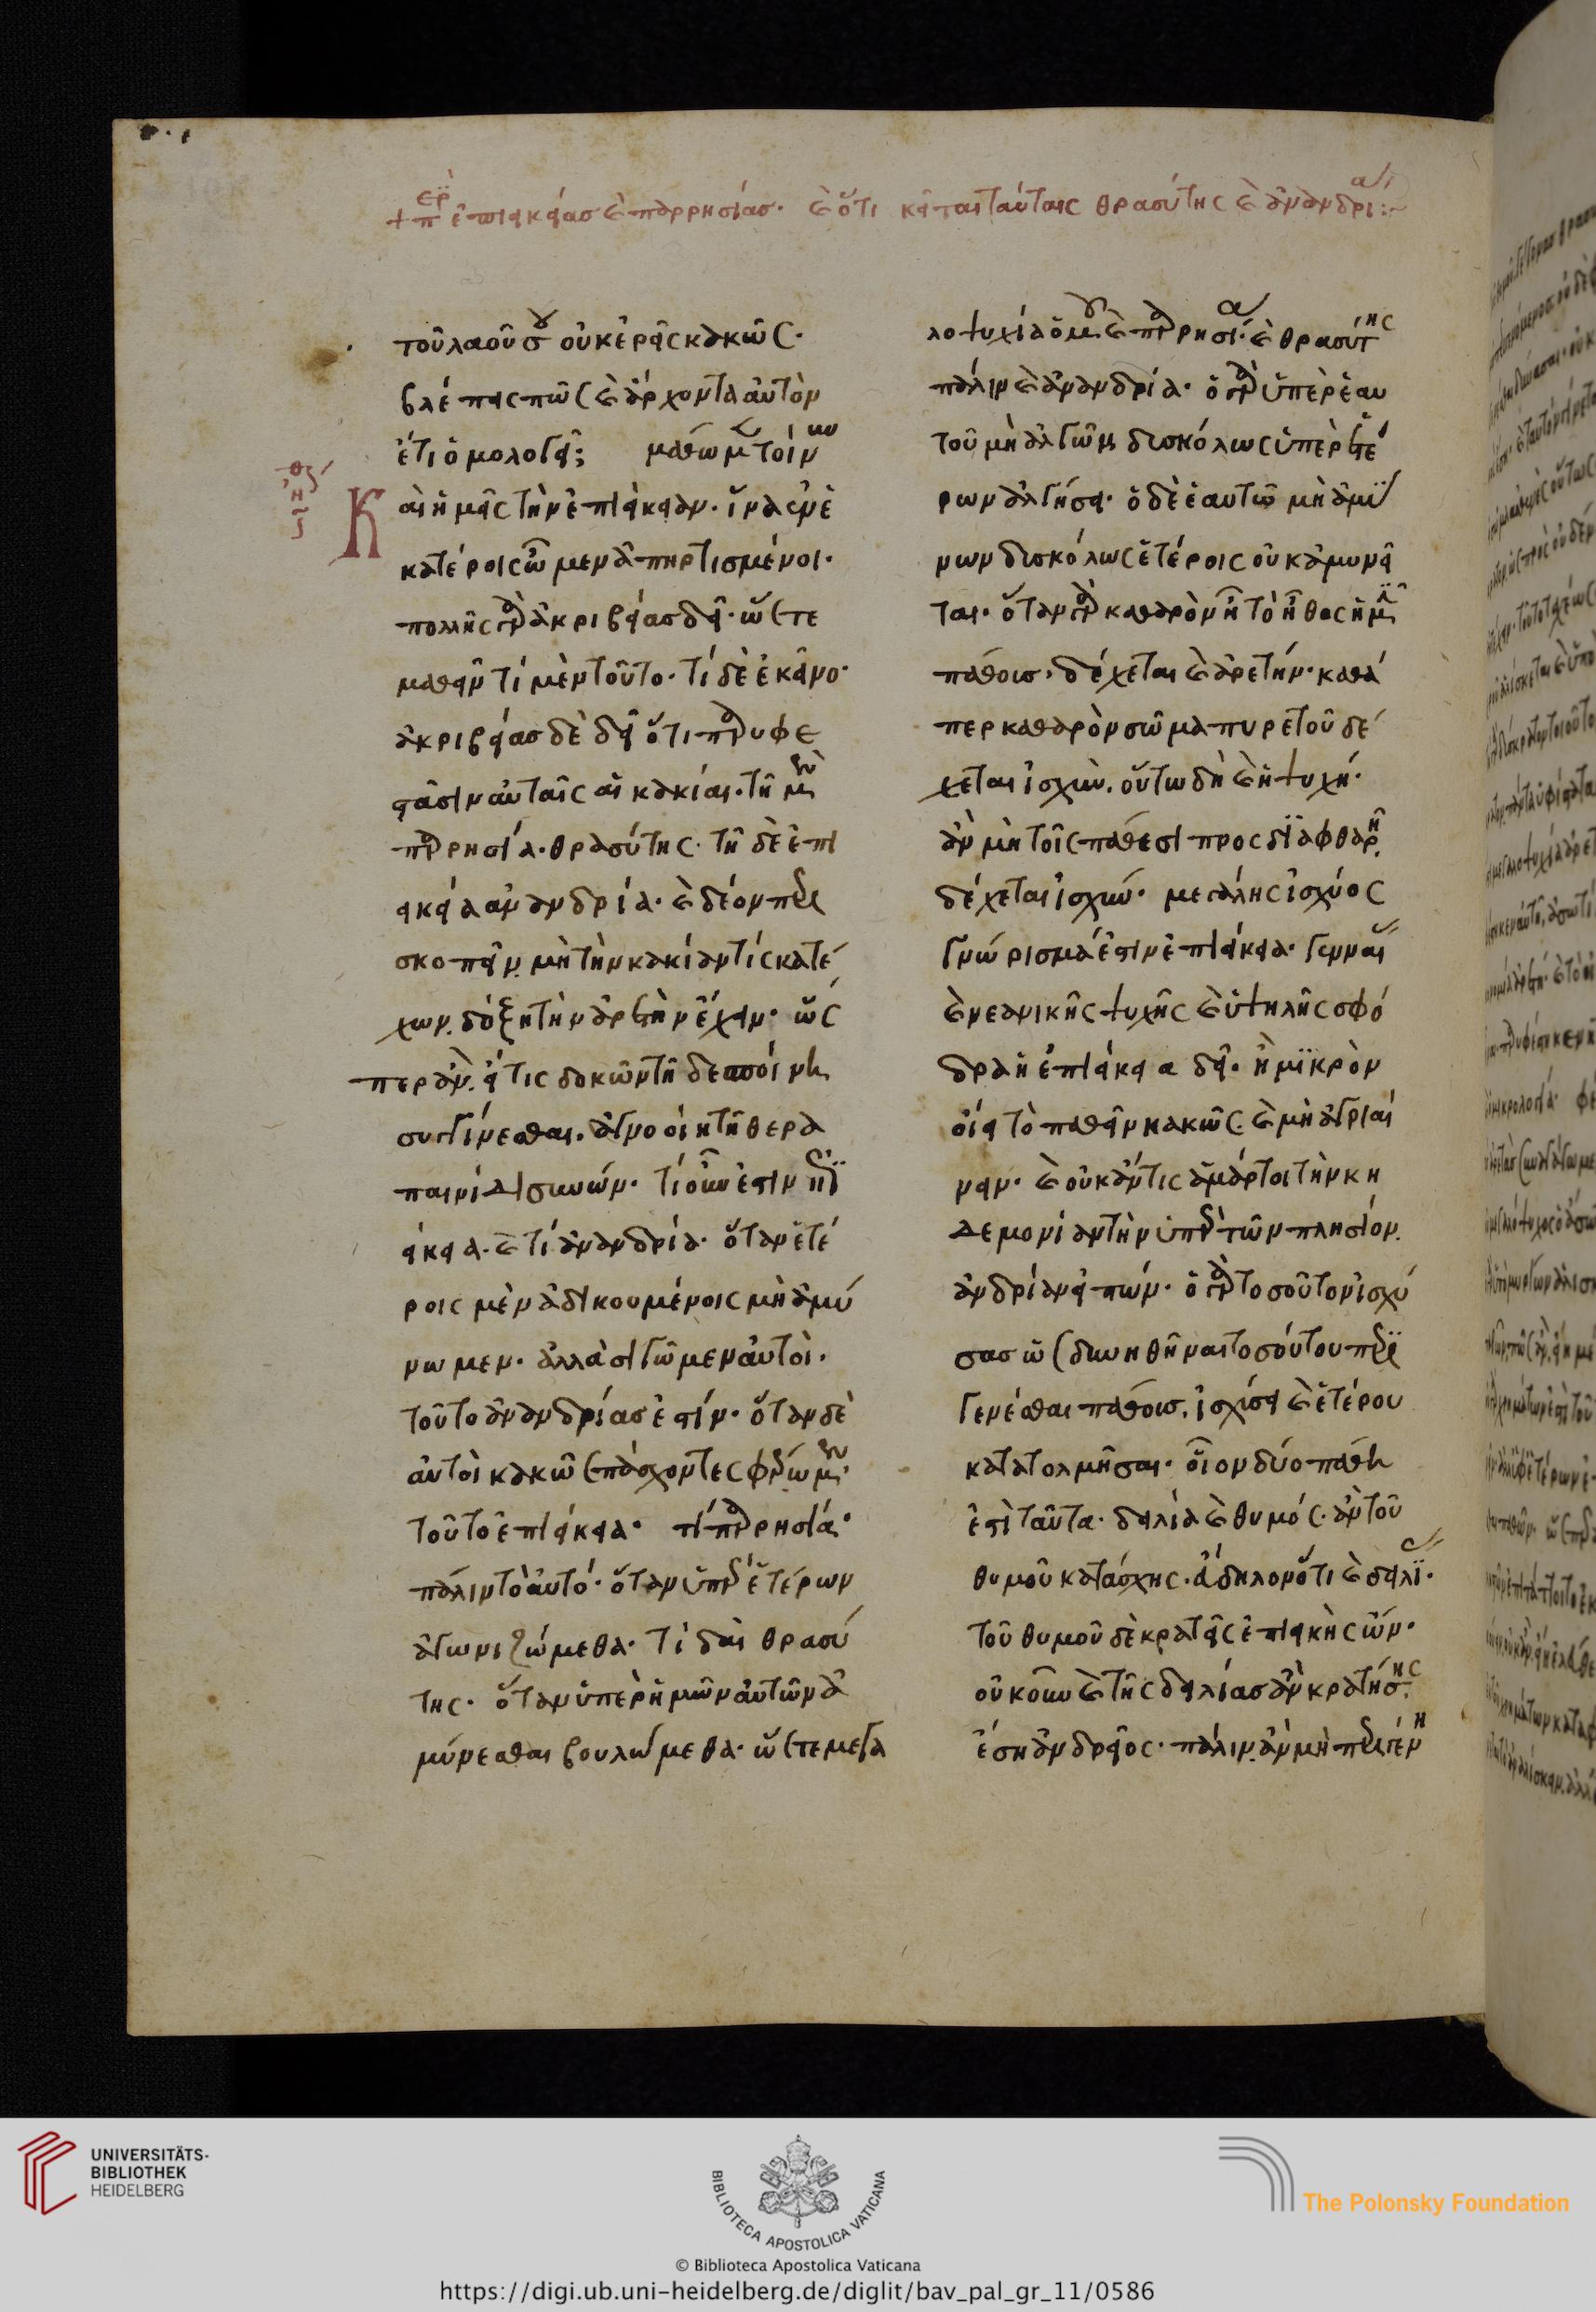 + περ ἐπιεικείας καὶ παρρησίας. καὶ ὅτι κεῖται ταύταις θρασύτης καὶ ἀνανδρία:~
τοῦ λαοῦ σου οὐκ ἐρεῖς κακῶς.
βλέπεις πῶς καὶ ἄρχοντα αὐτὸν
ἔτι ὁμολογεῖ; μάθωμεν τοίνυν
Καὶ ἡμεῖς τὴν ἐπιείκειαν. ἵνα ἐν ἑ
κατέροις ὦμεν ἀπηρτισμένοι.
πολλῆς γὰρ ἀκριβείας δεῖ. ὥστε
μαθεῖν τί μὲν τοῦτο. τί δὲ ἐκεῖνο.
ἀκριβείας δὲ δεῖ ὅτι παρυφε
στᾶσιν αὐταῖς αἱ κακίαι. τῇ μὲν
παρρησία. θρασύτης. τῇ δὲ ἐπι
εικεία ἀνανδρία. καὶ δέον περι
σκοπεῖν, μὴ τὴν κακίαν τίς κατέ
χων, δόξη τὴν ἀρετὴν ἔχειν. ὥς
περ ἂν, εἴ τις δοκῶν τῇ δεσποίνη
συγγίνεσθαι. ἀγνοοίη τῇ θερα
παινίδι συνών. τί οὖν ἐστιν ἐπι
είκεια. καὶ τί ἀνανδρία. ὅταν ἑτέ
ροις μὲν ἀδικουμένοις μὴ ἀμύ
νωμεν. ἀλλὰ σιγῶμεν αὐτοὶ.
τοῦτο ἀνανδρίας ἐστίν. ὅταν δὲ
αὐτοὶ κακῶς πάσχοντες φέρωμεν.
τοῦτο ἐπιείκεια. τί παρρησία.
πάλιν τὸ αὐτό. ὅταν ὑπὲρ ἑτέρων
ἀγωνιζώμεθα. τί δαὶ θρασύ
της. ὅταν ὑπὲρ ἡμῶν αὐτῶν ἀ
μύνεσθαι βουλώμεθα. ὥστε μεγα
λοψυχία ὁμοῦ καὶ παρρησία. καὶ θρασύτης
πάλιν καὶ ἀνανδρία. ὁ γὰρ ὑπὲρ ἑαυ
τοῦ μὴ ἀλγῶν, δυσκόλως ὑπὲρ ἑτέ
ρων ἀλγήσει. ὁ δὲ ἑαυτῶ μὴ ἀμύ
νων δυσκόλως ἑτέροις οὐκ ἀμυνεῖ
ται. ὅταν γὰρ καθαρὸν ἦ τὸ ἦθος ἡμῖν
πάθους, δέχεται καὶ ἀρετήν. καθά
περ καθαρὸν σῶμα πυρετοῦ δέ
χεται ἰσχύν. οὕτω δὴ καὶ ἡ ψυχή.
ἂν μὴ τοῖς πάθεσι προσδιαφθαρῆ,
δέχεται ἰσχύν. μεγάλης ἰσχύος
γνώρισμά ἐστιν ἐπιείκεια. γενναί
ας νεανικῆς ψυχῆς καὶ ὑψηλῆς σφό
δρα ἡ ἐπιείκεια δεῖ. ἢ μικρὸν
οἴει τὸ παθεῖν κακῶς. καὶ μὴ ἀγριαί
νειν. καὶ οὐκ ἄν τις ἁμάρτοι τὴν κη
δεμονίαν τὴν ὑπὲρ τῶν πλησίον,
ἀνδρίαν εἰπών. ὁ γὰρ τοσοῦτον ἰσχύ
σας ὡς δυνηθῆναι τοσούτου περι
γενέσθαι πάθους, ἰσχύσει καὶ ἑτέρου
κατατολμῆσαι. οἷον δύο πάθη
ἐστὶ ταῦτα. δειλία καὶ θυμός. ἂν τοῦ
θυμοῦ κατάσχης. εὔδηλον ὅτι καὶ δειλίας.
τοῦ θυμοῦ δὲ κρατεῖς ἐπιεικὴς ὤν.
οὐκοῦν καὶ τῆς δειλίας ἂν κρατήσης,
ἔση ἀνδρεῖος. πάλιν, ἂν μὴ περιγένη
UNIVERSITÄTS-
BIBLIOTHEK
HEIDELBERG
BIBLIOTECA APOSTOLICA VATICANA
The Polonsky Foundation
© Biblioteca Apostolica Vaticana
https://digi.ub.uni-heidelberg.de/diglit/bav_pal_gr_11/0586